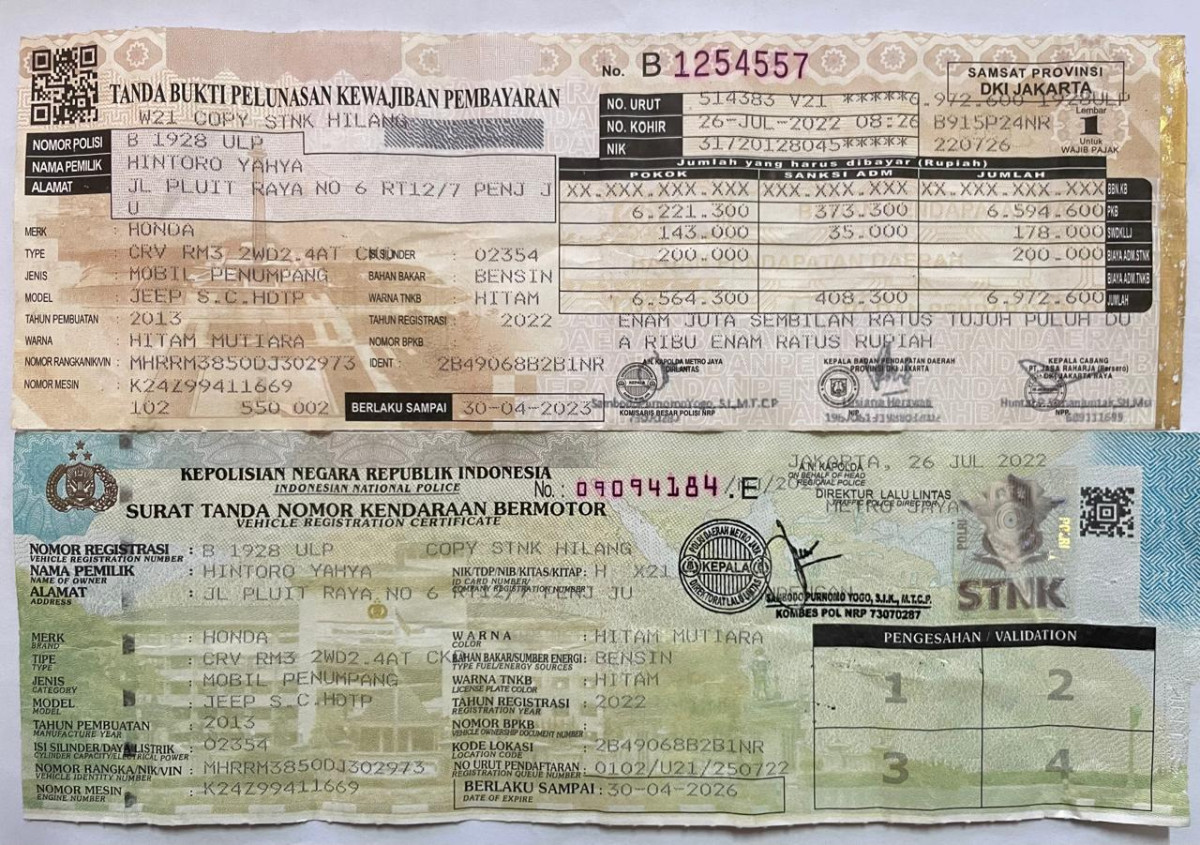 No. B 1254557
SAMSAT PROVINSI
DKI JAKARTA
TANDA BUKTI PELUNASAN KEWAJIBAN PEMBAYARAN
W21 COPY STNK HILANG
NO. URUT 514383 V21 *****6.972.600 1928ULP
NO. KOHIR 26-JUL-2022 08:26 B915P24NR
NIK 31720128045***** 220726
Lembar
1
Untuk
WAJIB PAJAK
NOMOR POLISI B 1928 ULP
NAMA PEMILIK HINTORO YAHYA
ALAMAT JL PLUIT RAYA NO 6 RT12/7 PENJ J
U
Jumlah yang harus dibayar (Rupiah)
POKOK SANKSI ADM JUMLAH
XX.XXX.XXX.XXX XX.XXX.XXX.XXX XX.XXX.XXX.XXX BBN.KB
6.221.300 373.300 6.594.600 PKB
143.000 35.000 178.000 SWDKLLJ
200.000 200.000 BIAYA ADM.STNK
BIAYA ADM.TNKB
6.564.300 408.300 6.972.600 JUMLAH
ENAM JUTA SEMBILAN RATUS TUJUH PULUH DU
A RIBU ENAM RATUS RUPIAH
MERK : HONDA
TYPE : CRV RM3 2WD2.4AT SILINDER : 02354
JENIS : MOBIL PENUMPANG BAHAN BAKAR : BENSIN
MODEL : JEEP S.C.HDTP WARNA TNKB : HITAM
TAHUN PEMBUATAN : 2013 TAHUN REGISTRASI : 2022
WARNA : HITAM MUTIARA NOMOR BPKB :
NOMOR RANGKA/NIK/VIN : MHRRM3850DJ302973 IDENT : 2B49068B2B1NR
NOMOR MESIN : K24Z99411669
102 550 002 BERLAKU SAMPAI 30-04-2023
A.N. KAPOLDA METRO JAYA
DIRLANTAS
KOMISARIS BESAR POLISI NRP
73070287
KEPALA BADAN PENDAPATAN DAERAH
PROVINSI DKI JAKARTA
KEPALA CABANG
PT. JASA RAHARJA (Persero)
DKI JAKARTA RAYA
NPP.
KEPOLISIAN NEGARA REPUBLIK INDONESIA
INDONESIAN NATIONAL POLICE
No. : 09094184.E
SURAT TANDA NOMOR KENDARAAN BERMOTOR
VEHICLE REGISTRATION CERTIFICATE
JAKARTA, 26 JUL 2022
A.N. KAPOLDA
ON BEHALF OF HEAD
REGIONAL POLICE
DIREKTUR LALU LINTAS
TRAFFIC POLICE DIRECTOR
METRO JAYA
NOMOR REGISTRASI : B 1928 ULP COPY STNK HILANG
VEHICLE REGISTRATION NUMBER
NAMA PEMILIK : HINTORO YAHYA NIK/TDP/NIB/KITAS/KITAP : H X21
NAME OF OWNER ID CARD NUMBER/
COMPANY REGISTRATION NUMBER
ALAMAT : JL PLUIT RAYA NO 6 RT12/7 PENJ JU
ADDRESS
POLRI DAERAH METRO JAYA
KEPALA
DIREKTORAT LALU LINTAS
SAMBODO PURNOMO YOGO, S.I.K., M.T.C.P.
KOMBES POL NRP 73070287
POLRI
STNK
MERK : HONDA WARNA : HITAM MUTIARA
BRAND COLOR
TIPE : CRV RM3 2WD2.4AT CKD BAHAN BAKAR/SUMBER ENERGI : BENSIN
TYPE TYPE FUEL/ENERGY SOURCES
JENIS : MOBIL PENUMPANG WARNA TNKB : HITAM
CATEGORY LICENSE PLATE COLOR
MODEL : JEEP S.C.HDTP TAHUN REGISTRASI : 2022
MODEL REGISTRATION YEAR
TAHUN PEMBUATAN : 2013 NOMOR BPKB :
MANUFACTURE YEAR VEHICLE OWNERSHIP DOCUMENT NUMBER
ISI SILINDER/DAYA LISTRIK : 02354 KODE LOKASI : 2B49068B2B1NR
CYLINDER CAPACITY/ELECTRICAL POWER LOCATION CODE
NOMOR RANGKA/NIK/VIN : MHRRM3850DJ302973 NO URUT PENDAFTARAN : 0102/U21/250722
VEHICLE IDENTITY NUMBER REGISTRATION QUEUE NUMBER
NOMOR MESIN : K24Z99411669 BERLAKU SAMPAI : 30-04-2026
ENGINE NUMBER DATE OF EXPIRE
PENGESAHAN / VALIDATION
1 2
3 4